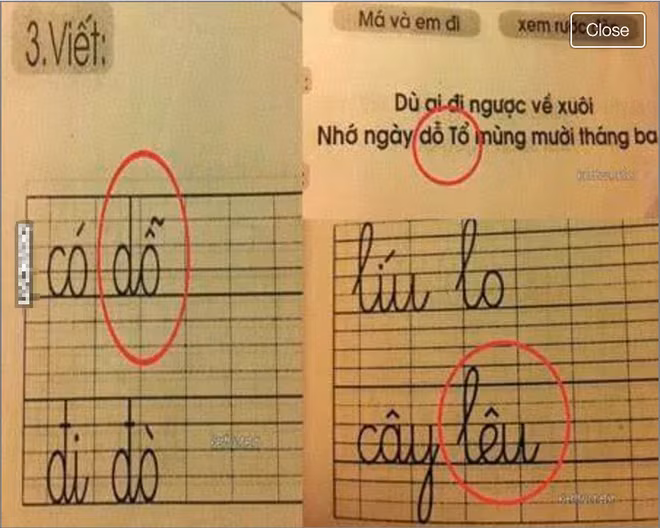 3.Viết:
có dỗ
đi đò
Má và em đi
xem rước
Close
Dù ai đi ngược về xuôi
Nhớ ngày dổ Tổ mùng mười tháng ba
líu lo
cây lêu